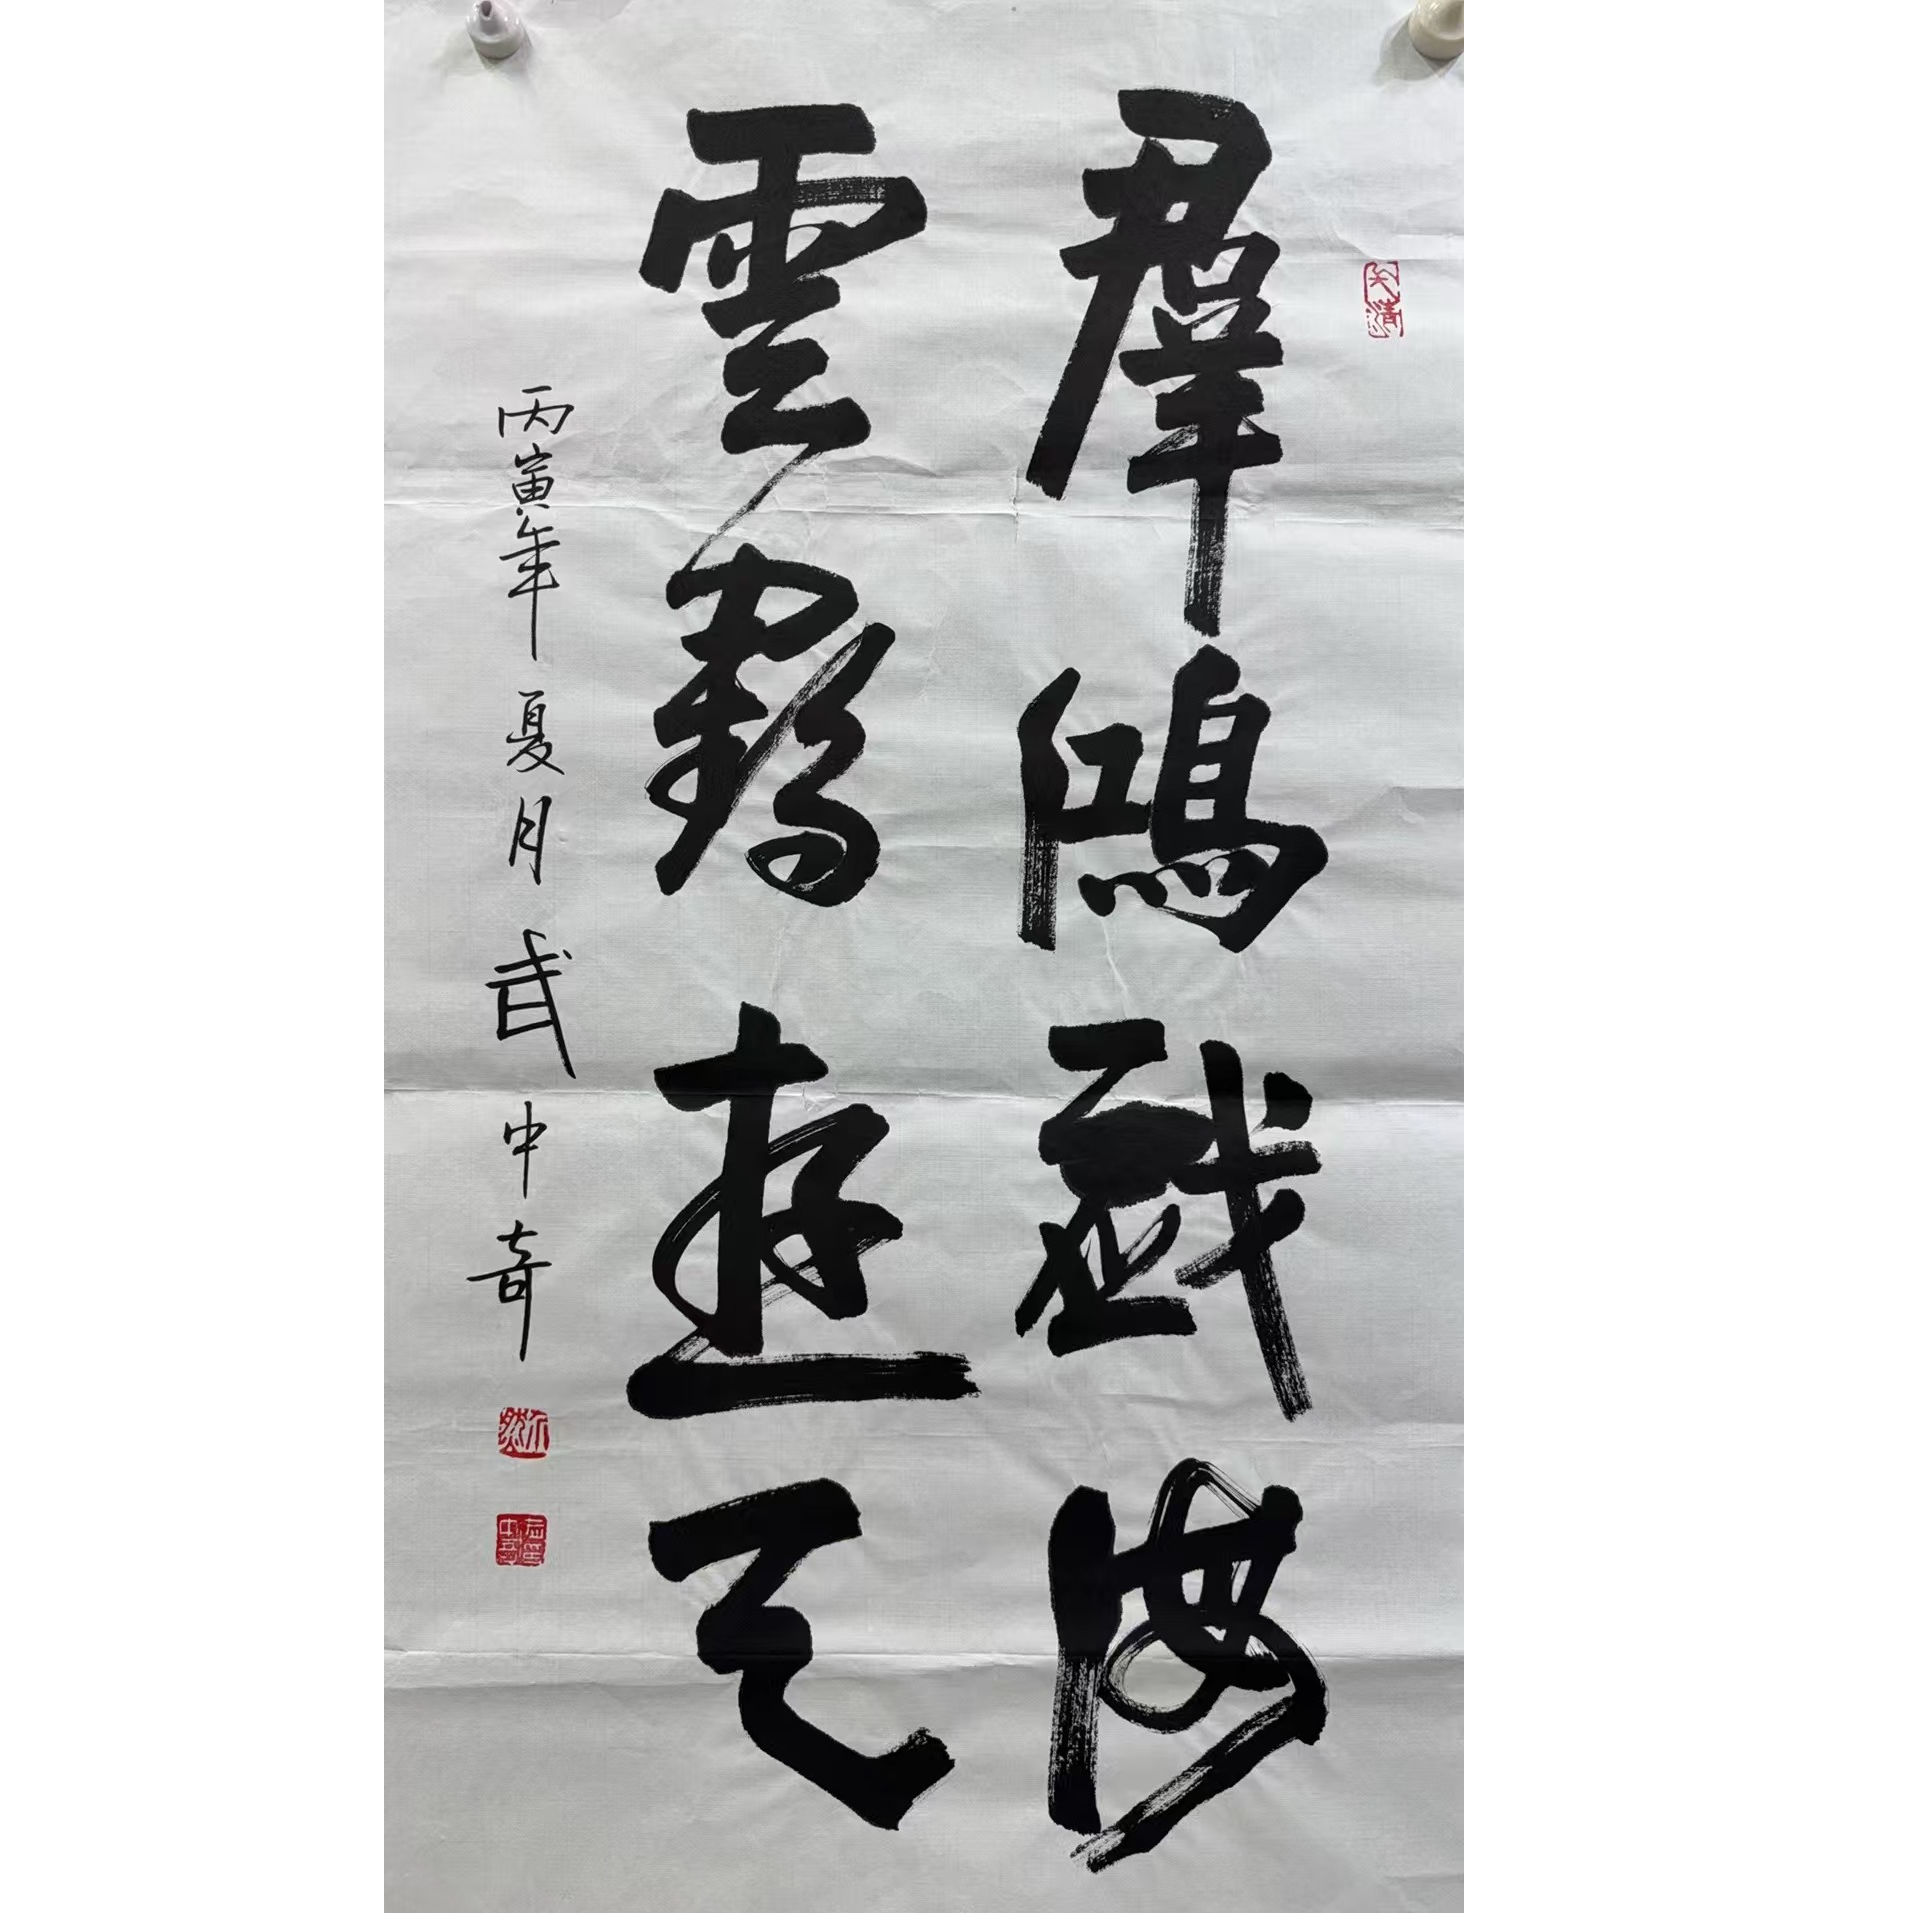 羣鴻戲海
雲鶴遊天
丙寅年夏月武中奇